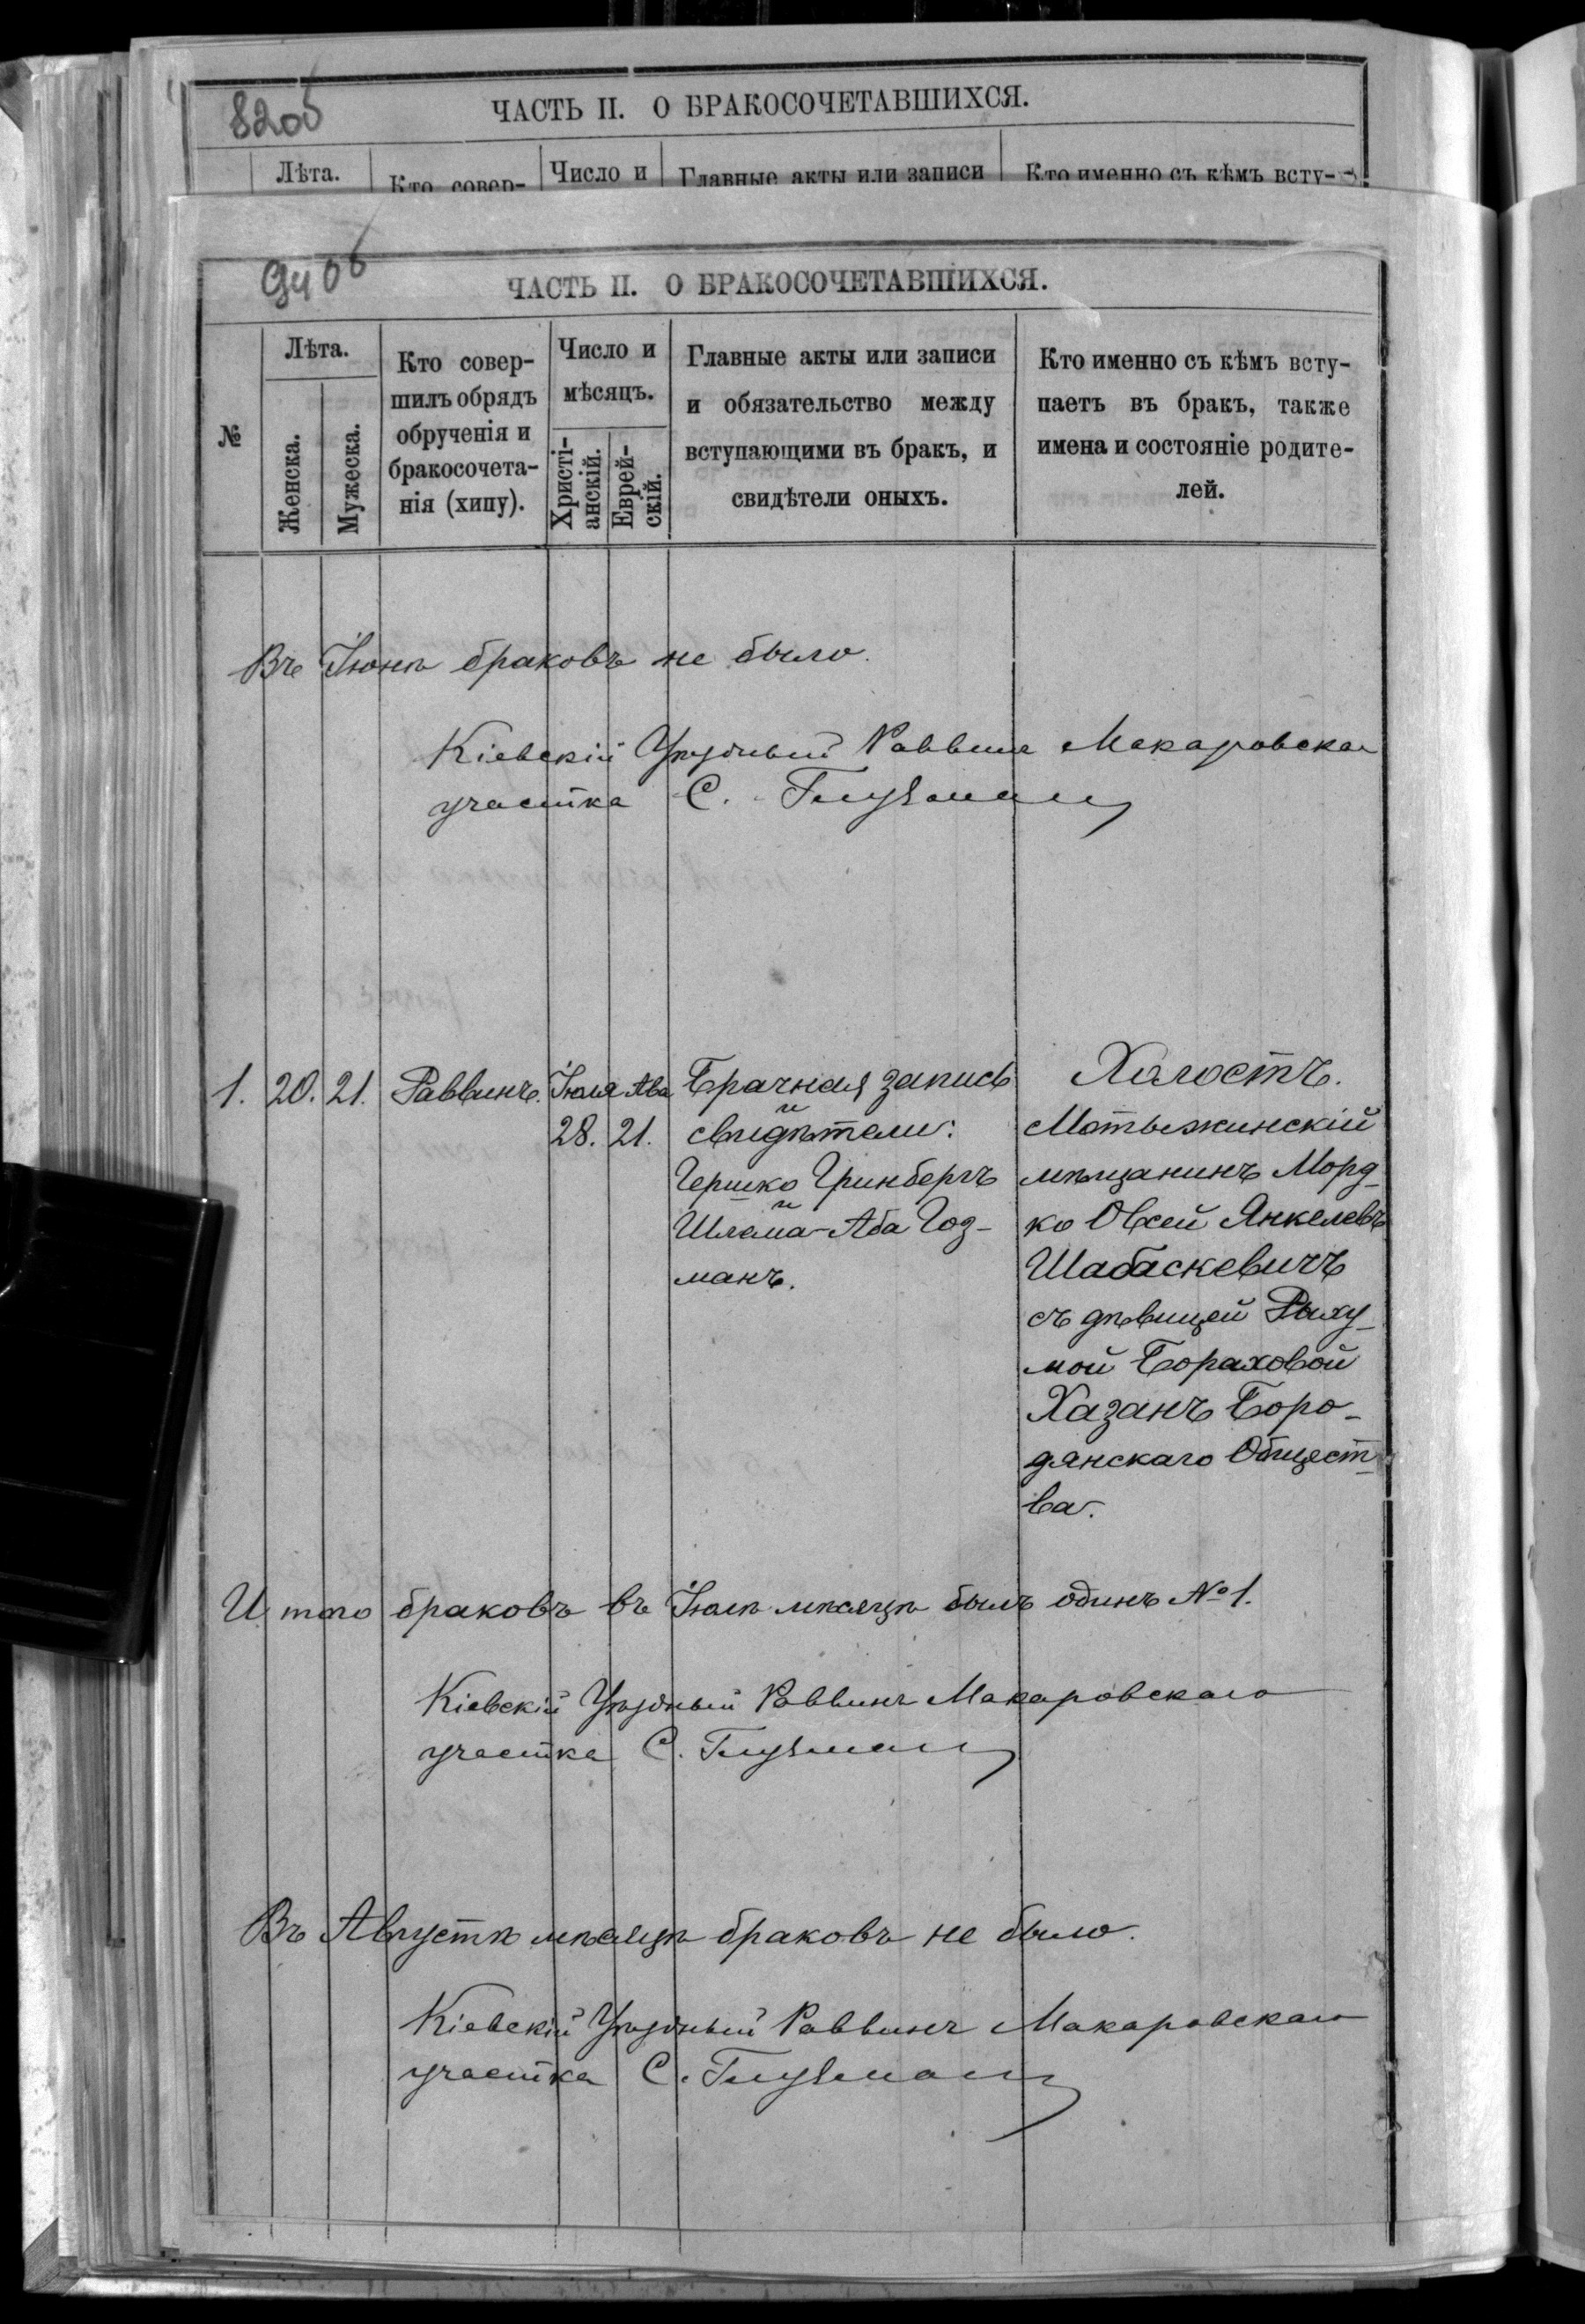 82об
ЧАСТЬ II. О БРАКОСОЧЕТАВШИХСЯ.
Лѣта.
Кто совер-
Число и
Главные акты или записи
Кто именно съ кѣмъ всту-
94об
ЧАСТЬ II. О БРАКОСОЧЕТАВШИХСЯ.
№
Лѣта.
Женска.
Мужеска.
Кто совер-
шилъ обрядъ
обрученія и
бракосочета-
нія (хипу).
Число и
мѣсяцъ.
Христі-
анскій.
Еврей-
скій.
Главные акты или записи
и обязательство между
вступающими въ бракъ, и
свидѣтели оныхъ.
Кто именно съ кѣмъ всту-
паетъ въ бракъ, также
имена и состояніе родите-
лей.
Въ Іюнѣ браковъ не было.
Кіевскій Уѣздный Раввинъ Макаровскаго
участка С. Глузманъ
1. 20. 21. Раввинъ. Іюля Ава
28. 21.
Брачная запись
и
свидѣтели:
Гершко Гринбергъ
и
Шлема-Аба Гоз-
манъ.
Холостъ.
Мотыжинскій
мѣщанинъ Морд-
ко Овсей Янкелевъ
Шабаскевичъ
съ дѣвицей Рыху-
мой Бораховой
Хазанъ Боро-
дянскаго Общест-
ва.
Итого браковъ въ Іюлѣ мѣсяцѣ былъ одинъ №1.
Кіевскій Уѣздный Раввинъ Макаровскаго
участка С. Глузманъ
Въ Августѣ мѣсяцѣ браковъ не было.
Кіевскій Уѣздный Раввинъ Макаровскаго
участка С. Глузманъ